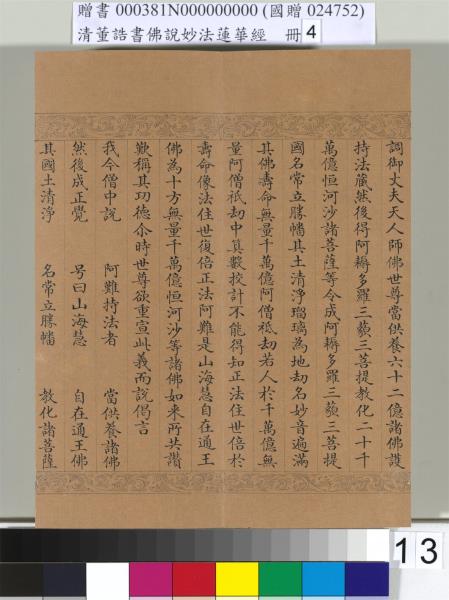 贈書 000381N000000000 (國贈 024752)
清董誥書佛說妙法蓮華經 冊 4
調御丈夫天人師佛世尊當供養六十二億諸佛護
持法藏然後得阿耨多羅三藐三菩提教化二十千
萬億恒河沙諸菩薩等令成阿耨多羅三藐三菩提
國名常立勝幡其土清淨瑠璃為地劫名妙音遍滿
其佛壽命無量千萬億阿僧祇劫若人於千萬億無
量阿僧祇劫中算數挍計不能得知正法住世倍於
壽命像法住世復倍正法阿難是山海慧自在通王
佛為十方無量千萬億恒河沙等諸佛如來所共讚
歎稱其功德尒時世尊欲重宣此義而說偈言
我今僧中說 阿難持法者 當供養諸佛
然後成正覺 号曰山海慧 自在通王佛
其國土清淨 名常立勝幡 教化諸菩薩
13